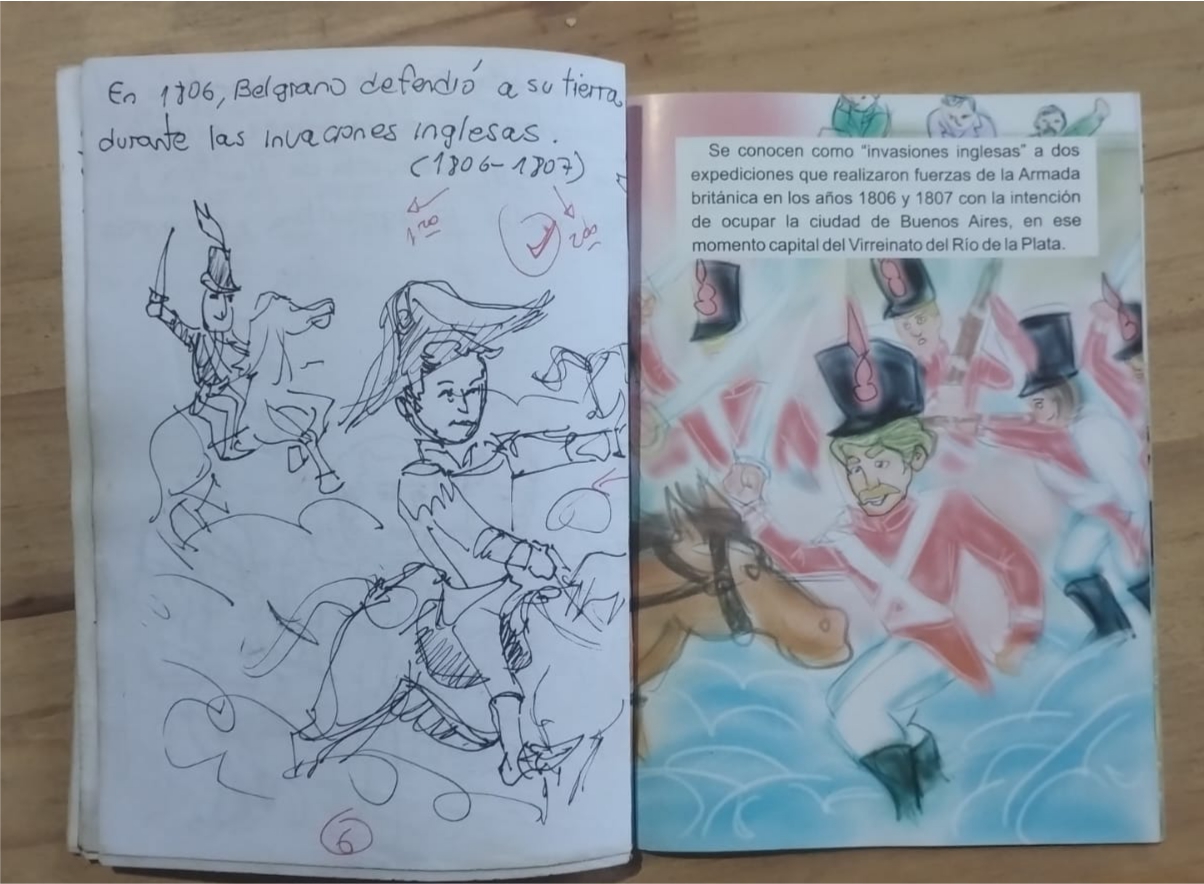 En 1806, Belgrano defendió a su tierra
durante las invaciones inglesas.
(1806-1807)
1ra
2da
6
Se conocen como “invasiones inglesas” a dos
expediciones que realizaron fuerzas de la Armada
británica en los años 1806 y 1807 con la intención
de ocupar la ciudad de Buenos Aires, en ese
momento capital del Virreinato del Río de la Plata.